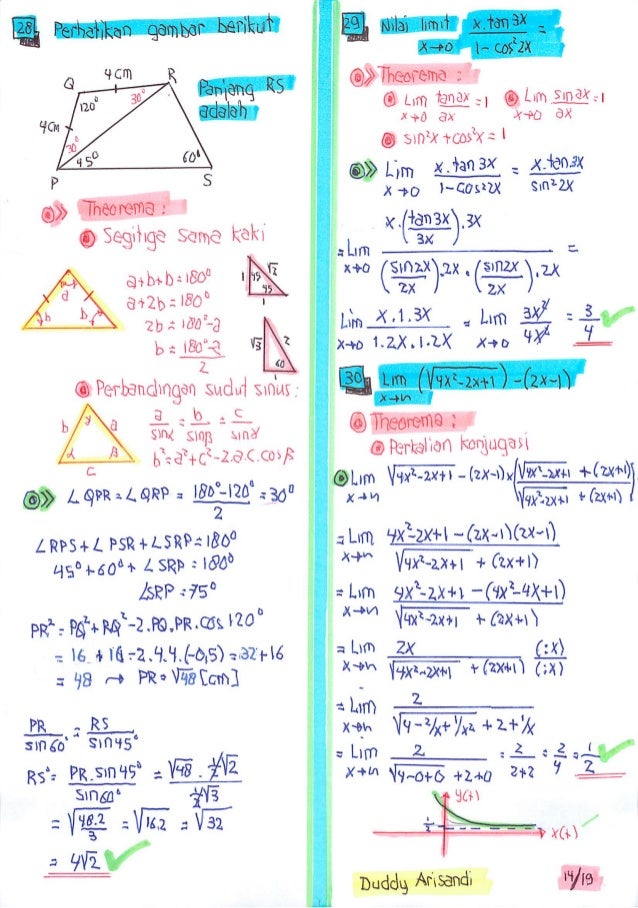 28. Perhatikan gambar berikut
4 cm
Q
R
120°
30°
4 cm
30°
45°
60°
P
S
Panjang RS
adalah
Theorema :
Segitiga sama kaki
a
b b
a+b+b = 180°
a+2b = 180°
2b = 180°-a
b = 180°-a / 2
1 45 √2
45
1
√3 2
60
1
Perbandingan sudut sinus :
b γ a
α β
c
a/sinα = b/sinβ = c/sinγ
b² = a²+c²-2.a.c.cosβ
∠QPR = ∠QRP = 180°-120° / 2 = 30°
∠RPS + ∠PSR + ∠SRP = 180°
45° + 60° + ∠SRP = 180°
∠SRP = 75°
PR² = PQ² + RQ² - 2.PQ.PR.cos 120°
= 16 + 16 - 2.4.4.(-0,5) = 32+16
= 48 → PR = √48 [cm]
PR/sin60° = RS/sin45°
RS = PR.sin45° / sin60° = √48 . ½√2 / ½√3
= √(48.2/3) = √16.2 = √32
= 4√2
29. Nilai limit x→0 x.tan 3x / 1-cos²2x =
Theorema :
Lim x→0 tan ax / ax = 1
Lim x→0 sin ax / ax = 1
sin²x + cos²x = 1
Lim x→0 x.tan 3x / 1-cos²2x = x.tan 3x / sin²2x
= Lim x→0 x.(tan3x / 3x).3x / (sin2x / 2x).2x.(sin2x / 2x).2x =
Lim x→0 x.1.3x / 1.2x.1.2x = Lim x→0 3x² / 4x² = 3/4
30. Lim x→n (√4x²-2x+1) - (2x-1)
Theorema :
Perkalian konjugasi
Lim x→n √4x²-2x+1 - (2x-1) x (√4x²-2x+1 + (2x+1) / √4x²-2x+1 + (2x+1))
= Lim x→n 4x²-2x+1 - (2x-1)(2x-1) / √4x²-2x+1 + (2x+1)
= Lim x→n 4x²-2x+1 - (4x²-4x+1) / √4x²-2x+1 + (2x+1)
= Lim x→n 2x / √4x²-2x+1 + (2x+1) (:x) / (:x)
= Lim x→n 2 / √4-2/x+1/x² + 2+1/x
= Lim x→n 2 / √4-0+0 + 2+0 = 2 / 2+2 = 2/4 = 1/2
y(+)
1/2
x(+)
Duddy Arisandi
14/19